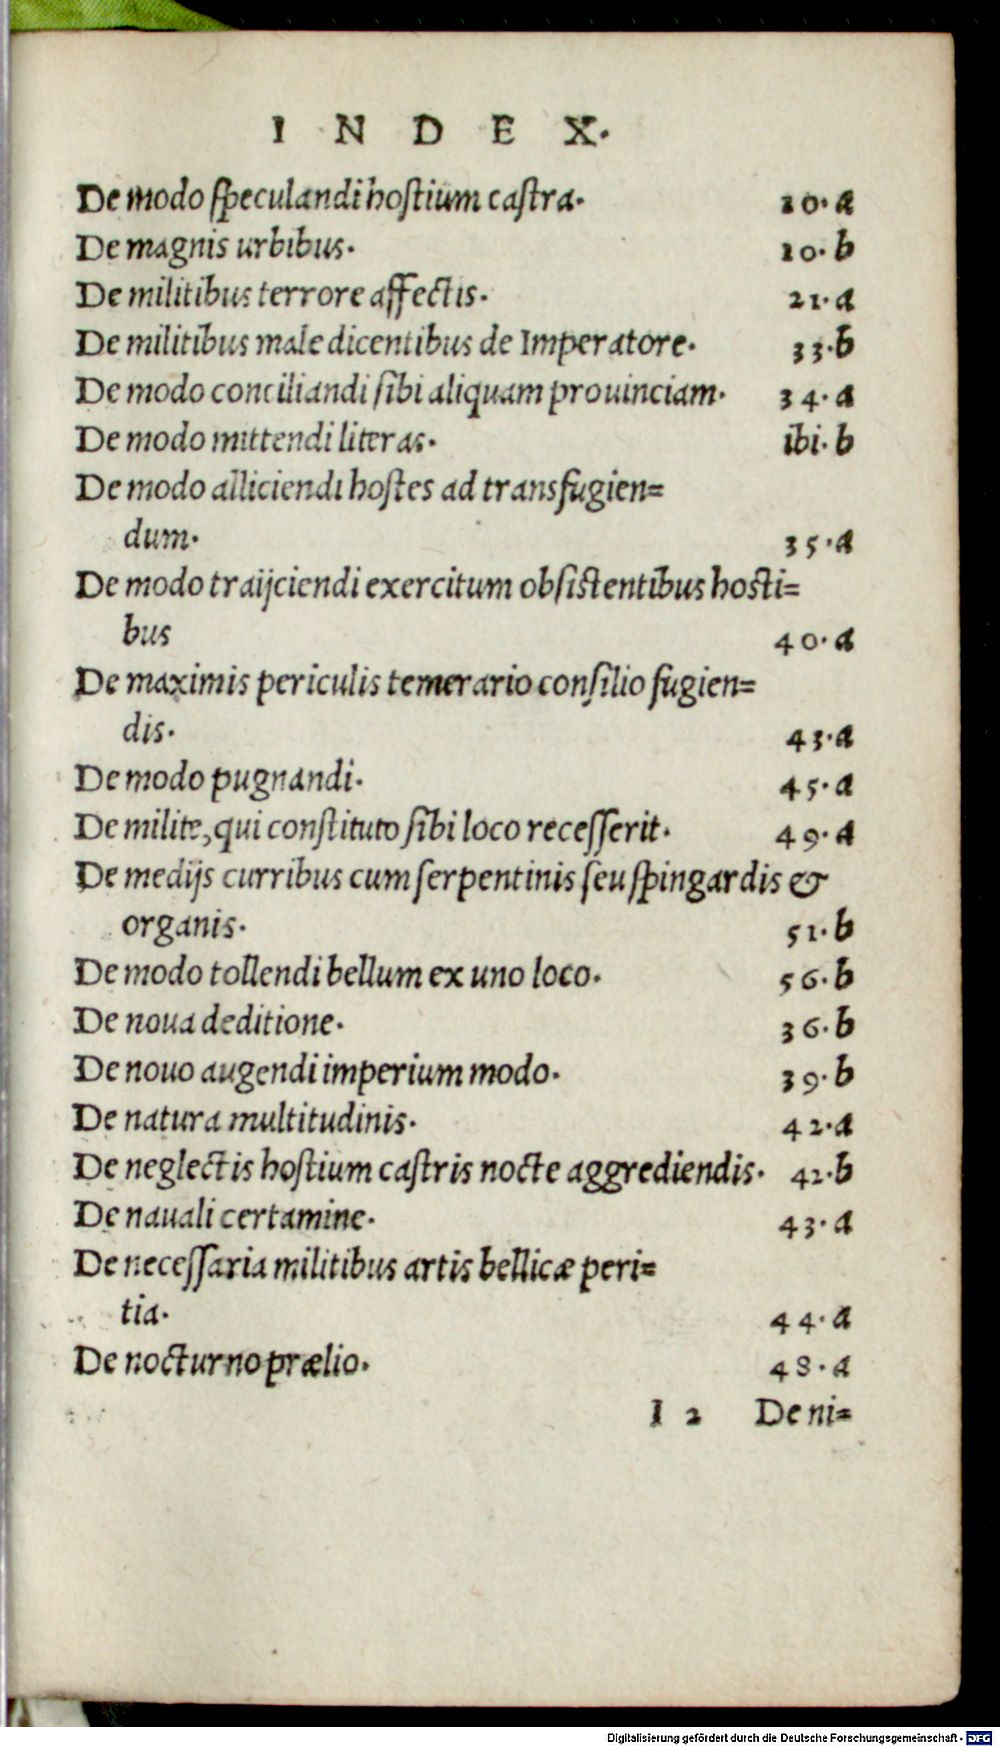 INDEX.
De modo speculandi hostium castra. 20. a
De magnis urbibus. 20. b
De militibus terrore affectis. 21. a
De militibus male dicentibus de Imperatore. 33. b
De modo conciliandi sibi aliquam prouinciam. 34. a
De modo mittendi literas. ibi. b
De modo alliciendi hostes ad transfugien=
dum. 35. a
De modo traijciendi exercitum obsistentibus hosti=
bus 40. a
De maximis periculis temerario consilio fugien=
dis. 43. a
De modo pugnandi. 45. a
De milite, qui constituto sibi loco recesserit. 49. a
De medijs curribus cum serpentinis seu spingardis &
organis. 51. b
De modo tollendi bellum ex uno loco. 56. b
De noua deditione. 36. b
De nouo augendi imperium modo. 39. b
De natura multitudinis. 42. a
De neglectis hostium castris nocte aggrediendis. 42. b
De nauali certamine. 43. a
De necessaria militibus artis bellicæ peri=
tia. 44. a
De nocturno prælio. 48. a
I 2 De ni=
Digitalisierung gefördert durch die Deutsche Forschungsgemeinschaft - DFG